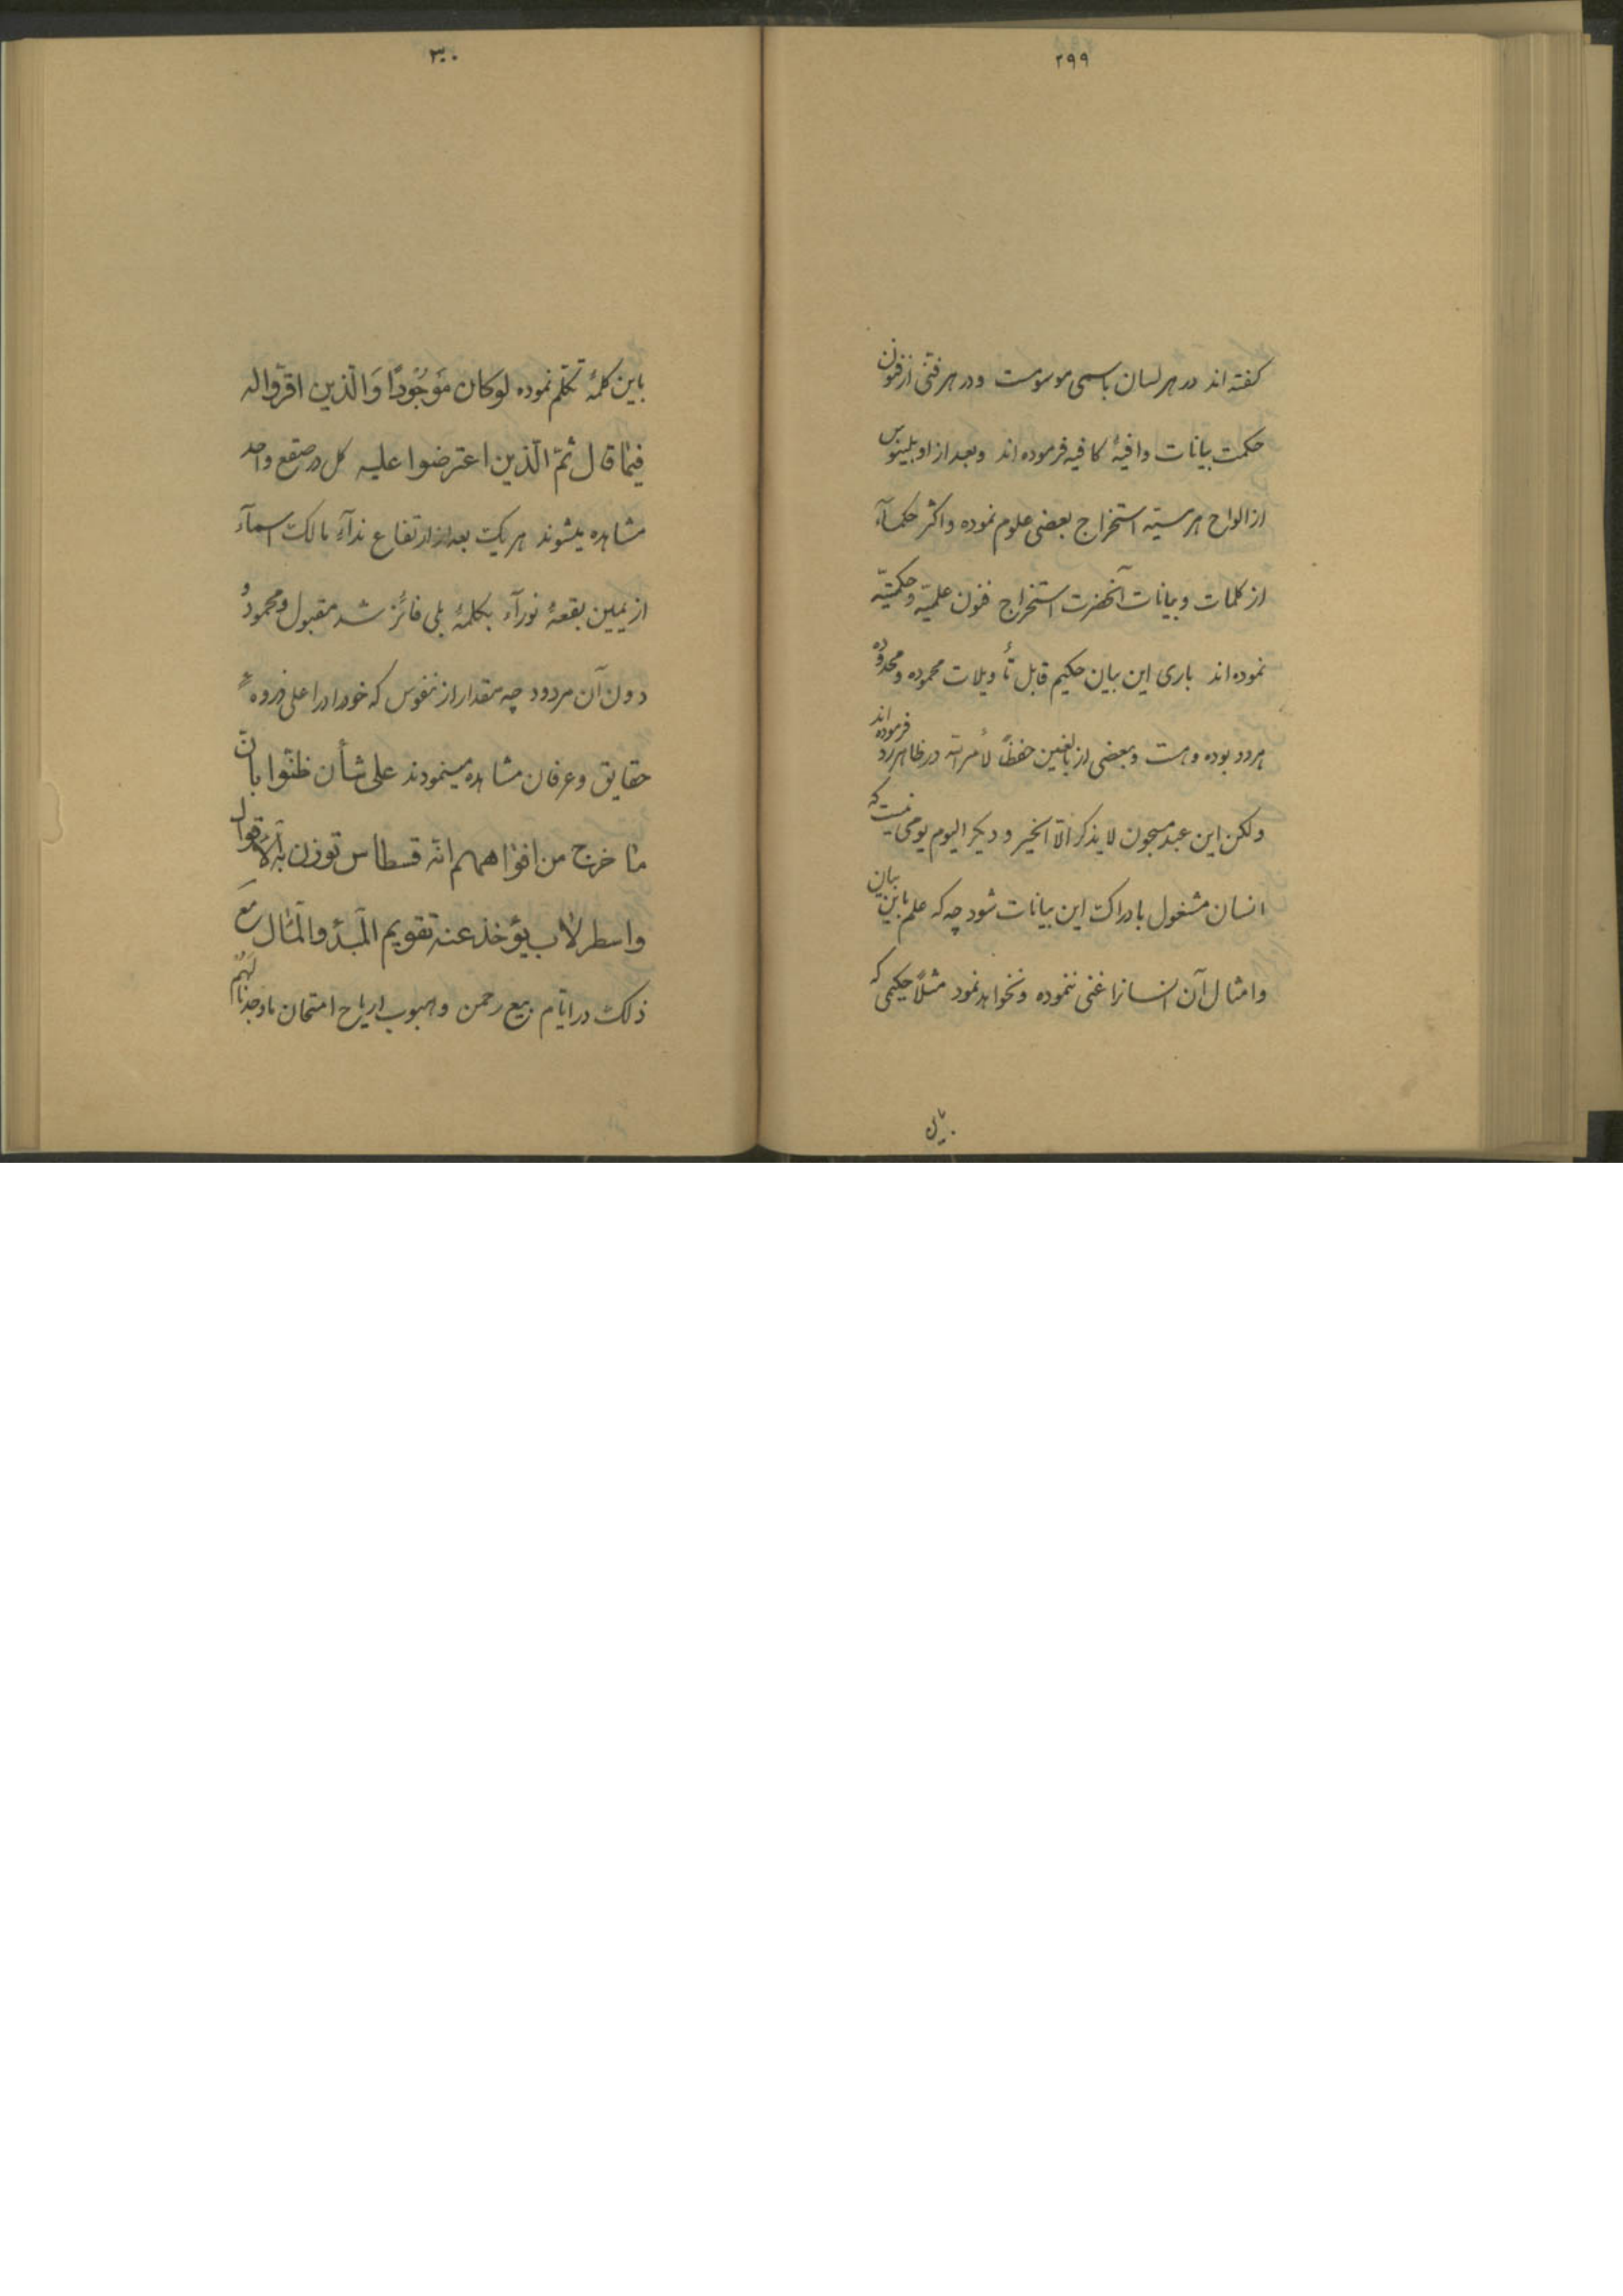 ۲۹۹
کفته اند در هر لسان باسمی موسومست و در هر فنّی از فنون
حکمت بیانات وافیهٔ کافیه فرموده اند وبعد از او بلینوس
از الواح هرمسیّه استخراج بعضی علوم نموده واکثر حکمآء
از کلمات و بیانات آنحضرت استخراج فنون علمیّه وحکمتیّه
نموده اند باری این بیان حکیم قابل تأویلات محموده و محدوده
هر دو بوده وهست وبعضی از بالغین حفظاً لأمر الله در ظاهر ردّ فرموده اند
ولکن این عبد مسجون لا یذکر الّا الخیر و دیکر الیوم یومی نیست که
انسان مشغول بادراک این بیانات شود چه که علم باین بیان
وامثال آن انسانرا غنی ننموده ونخواهد نمود مثلاً حکیمی که
باین
۳۰۰
باین کلمهٔ تکلّم نموده لوکان مَوجُوداً وَالّذین اقرّوا له
فیما قال ثمّ الّذین اعترضوا علیه کل در صقع واحد
مشاهده میشوند هر یک بعد از ارتفاع ندآء مالک اسمآء
از یمین بقعهٔ نورآء بکلمهٔ بلی فائز شد مقبول ومحمود و
دون آن مردود چه مقدار از نفوس که خود را در اعلی ذروهٔ
حقایق وعرفان مشاهده مینمودند علی شأن ظنّوا بانّ
ما خرج من افواههم انّه قسطاس توزن به الأقوال
واسطرلاب یؤخذ عنه تقویم المبدُٔ والمآل مع
ذلک در ایّام ربیع رحمن وهبوب اریاح امتحان ما وجدنا لهم